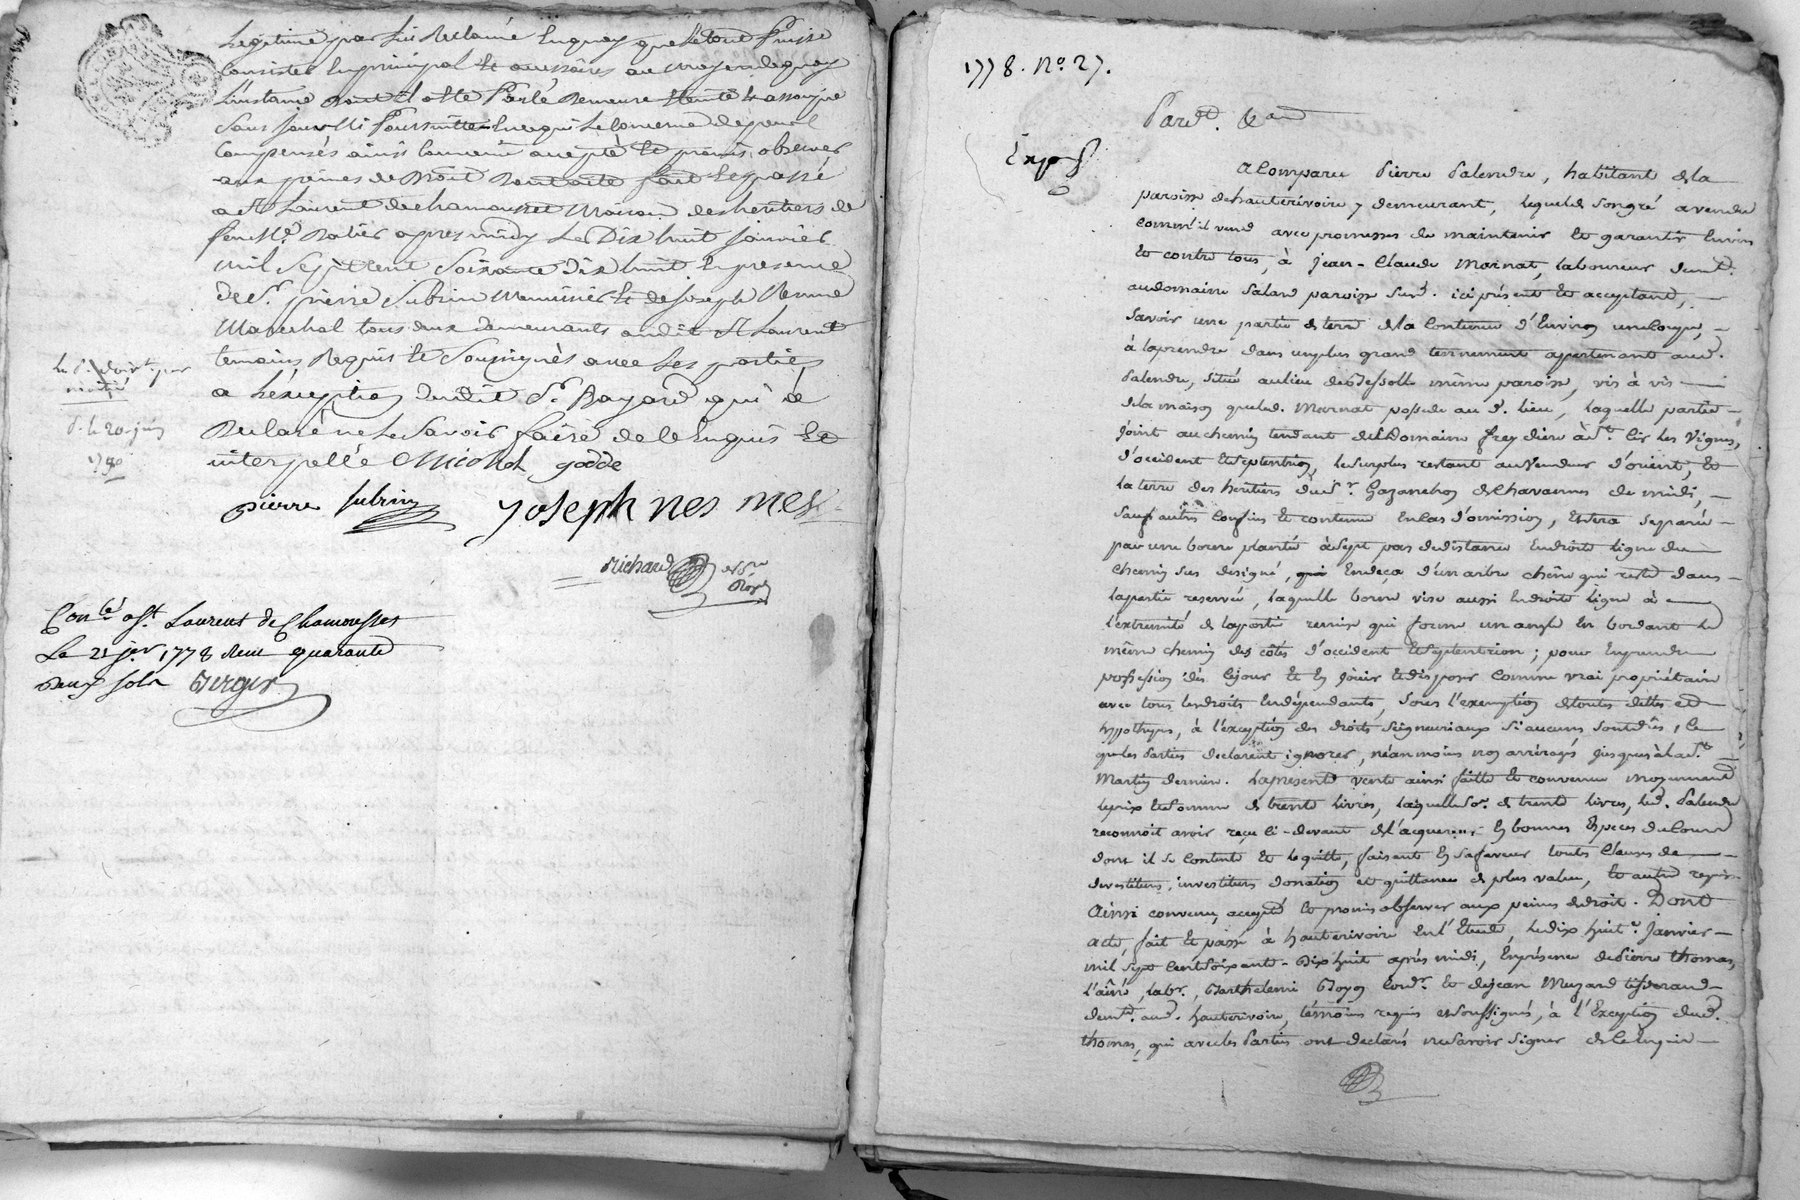 Legitime par lui Reclamé Enquoy que le tout Puisse
Consister En principal Et accessoires au moyen de quoy
L'instance dont il a Eté Parlé Demeure Eteinte Et assoupie
Sans Poursuittes En ce qui le Concerne depens
Compensés ainsi Convenû accepté Et promis observer
aux peines de Droit Dont acte fait Et passé
a St Laurent de chamousset Maison des heritiers de
feu Mr. Ratier apres midy Le Dix huit Janvier
mil Sept Cent Soixante dix huit En presence
de Sr. pierre Subrin Menuisier Et de Joseph
Marechal tous deux demeurants audit St Laurent
temoins Requis Et Soussignés avec Les parties
a L'exception dudit Sr. Bayard qui a
Declaré ne Le Savoir faire de ce Enquis Et
interpellé
pierre Subrin Joseph
Richard
nore Roy
Con.lé a St. Laurent de Chamousset
Le 21 jer. 1778 Reçu quarante
deux sols Berger
moitié
d. le 20 juin
1778. No. 27.
Pard.t &.a
Exp
A Comparu Pierre Palendre, habitant de la
paroisse de hauterivoire y demeurant, lequel de son gré a vendu
comm'il vend avec promesses de maintenir et garantir Envers
Et contre tous, à Jean-Claude Marnat, laboureur demt.
au domaine Saland paroisse susd. ici présent Et acceptant,
Savoir une partie de terre de la Contenue d'Environ
à la prendre dans un plus grand tennement appartenant aud.
Palendre, située au lieu de même paroisse, vis à vis
de la maison que led. Marnat possede au d. lieu, laquelle partie
joint au chemin tendant du Domaine freydiere à St. Cir les Vignes,
d'occident Et Septentrion, le surplus restant au Vendeur d'orient, Et
la terre des héritiers du Sr. Gazanchon de Chavannes de midi,
sauf autres confins Et contenue En cas d'omission, Et sera séparée
par une borne plantée à sept pas de distance En droite ligne du
chemin sus désigné, Endeça d'un arbre chêne qui reste dans
la partie reservée, laquelle borne vise aussi En droite ligne à
l'extremité de la partie remise qui forme un angle En bordant le
même chemin des côtés d'occident Et Septentrion ; pour En prendre
possession dès ce jour Et En jouir Et disposer comme vrai propriétaire
avec tous les droits En dépendants, sous l'exemption de toutes dettes et
hypotheques, à l'exception des droits Seigneuriaux si aucuns sont dûs, ce
que les Parties declarent ignorer, néanmoins nos arrérages jusques à la St.
Martin dernier. La presente vente ainsi faitte Et convenue moyennant
le prix Et Somme de trente livres, laquelle so.e de trente livres, led. Palendre
reconnoit avoir reçue ci-devant de l'acquereur En bonnes Especes du Cours
dont il se contente Et le quitte, faisant En sa faveur toutes Clauses de
devestiture, investiture donation et quittance de plus value, Et autre requise
Ainsi convenu, accepté Et promis observer aux peines de droit. Dont
acte, fait Et passé à hauterivoire En l'Etude, le dix huit.e Janvier
mil Sept Cent Soixante-Dix huit après midi, En présence de Pierre thomas,
l'aîné, labr., Barthelemi Goyon Cord.r Et de jean Muzard tisserand
demt. aud. hauterivoire, témoins requis et soussignés, à l'Exception dud.
thomas, qui avec les Parties ont declaré ne savoir signer de ce Enquis